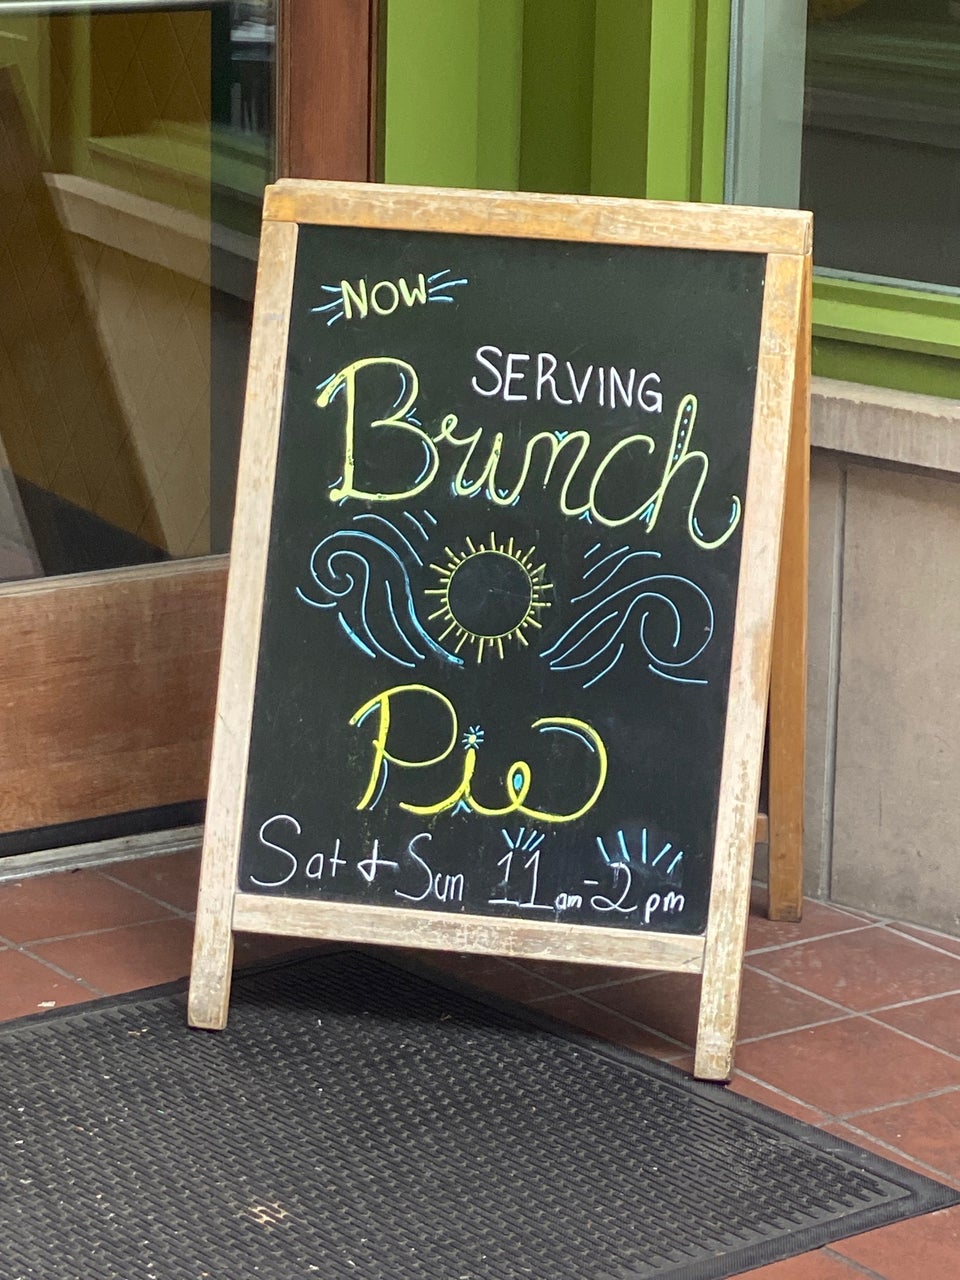 NOW
SERVING
Brunch
Pie
Sat & Sun 11am-2pm